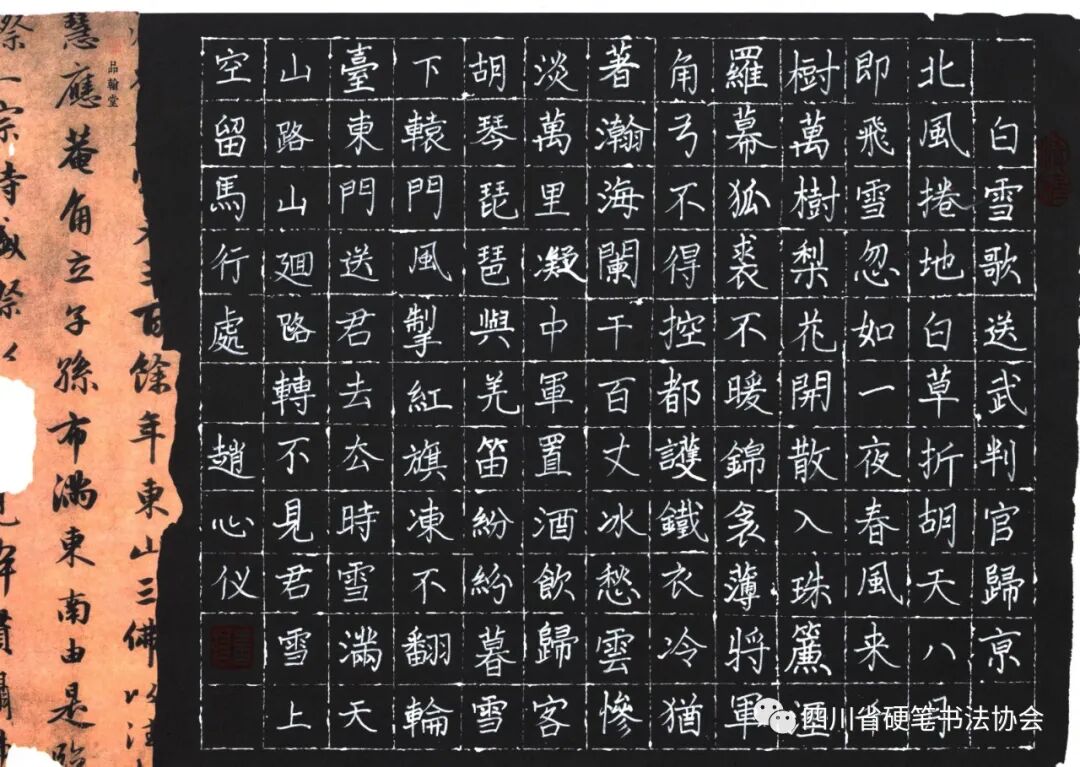 白雪歌送武判官歸京
北風捲地白草折胡天八月
即飛雪忽如一夜春風来
樹萬樹梨花開散入珠簾濕
羅幕狐裘不暖錦衾薄將軍
角弓不得控都護鐵衣冷猶
著瀚海闌干百丈冰愁雲慘
淡萬里凝中軍置酒飲歸客
胡琴琵琶與羌笛紛紛暮雪
下轅門風掣紅旗凍不翻輪
臺東門送君去去時雪滿天
山路山迴路轉不見君雪上
空留馬行處 趙心仪
品翰堂
三百餘年東山三佛以
慧應菴角立子孫布滿東南由是臨
一宗時盛
四川省硬笔书法协会